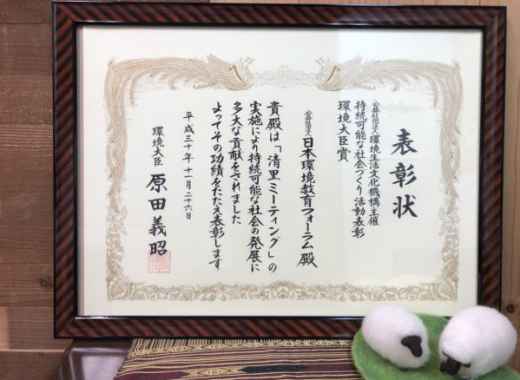 表彰状
公益社団法人 環境生活文化機構主催
持続可能な社会づくり活動表彰
環境大臣賞
公益社団法人 日本環境教育フォーラム 殿
貴殿は「清里ミーティング」の
実施により持続可能な社会の発展に
多大な貢献をされました
よってその功績をたたえ表彰します
平成三十年十一月二十六日
環境大臣 原田義昭